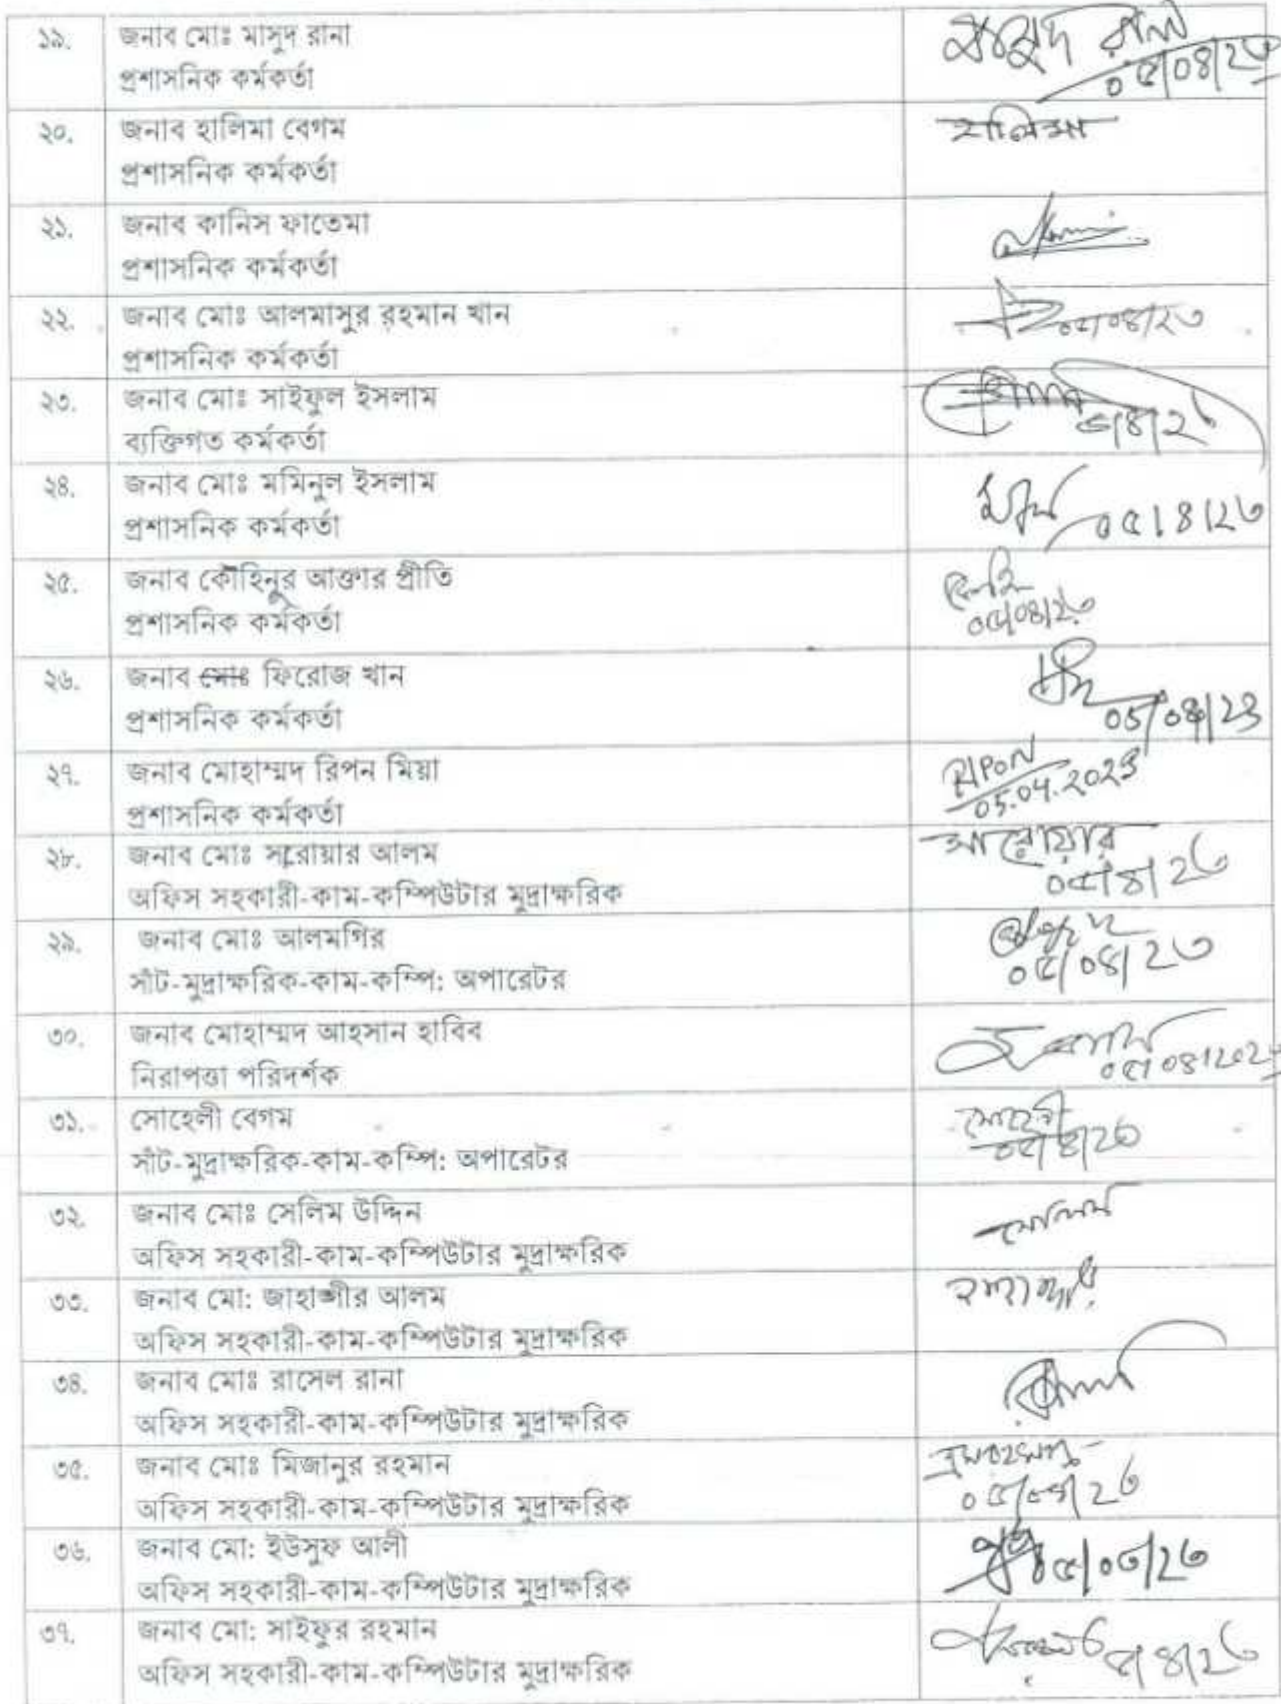 ১৯. জনাব মোঃ মাসুদ রানা মাসুদ রানা
প্রশাসনিক কর্মকর্তা ০৫/০৪/২৩
২০. জনাব হালিমা বেগম হালিমা
প্রশাসনিক কর্মকর্তা
২১. জনাব কানিস ফাতেমা
প্রশাসনিক কর্মকর্তা
২২. জনাব মোঃ আলমাসুর রহমান খান ০৫/০৪/২৩
প্রশাসনিক কর্মকর্তা
২৩. জনাব মোঃ সাইফুল ইসলাম
ব্যক্তিগত কর্মকর্তা ৫/৪/২৩
২৪. জনাব মোঃ মমিনুল ইসলাম
প্রশাসনিক কর্মকর্তা ০৫/৪/২৩
২৫. জনাব কৌহিনুর আক্তার প্রীতি
প্রশাসনিক কর্মকর্তা ০৫/০৪/২৩
২৬. জনাব মোঃ ফিরোজ খান
প্রশাসনিক কর্মকর্তা 05/04/23
২৭. জনাব মোহাম্মদ রিপন মিয়া RIPON
প্রশাসনিক কর্মকর্তা 05.04.2023
২৮. জনাব মোঃ সরোয়ার আলম সারোয়ার
অফিস সহকারী-কাম-কম্পিউটার মুদ্রাক্ষরিক ০৫/৪/২৩
২৯. জনাব মোঃ আলমগির
সাঁট-মুদ্রাক্ষরিক-কাম-কম্পি: অপারেটর ০৫/০৪/২৩
৩০. জনাব মোহাম্মদ আহসান হাবিব
নিরাপত্তা পরিদর্শক ০৫/০৪/২০২৩
৩১. সোহেলী বেগম সোহেলী
সাঁট-মুদ্রাক্ষরিক-কাম-কম্পি: অপারেটর ০৫/৪/২৩
৩২. জনাব মোঃ সেলিম উদ্দিন সেলিম
অফিস সহকারী-কাম-কম্পিউটার মুদ্রাক্ষরিক
৩৩. জনাব মো: জাহাঙ্গীর আলম
অফিস সহকারী-কাম-কম্পিউটার মুদ্রাক্ষরিক
৩৪. জনাব মোঃ রাসেল রানা
অফিস সহকারী-কাম-কম্পিউটার মুদ্রাক্ষরিক
৩৫. জনাব মোঃ মিজানুর রহমান
অফিস সহকারী-কাম-কম্পিউটার মুদ্রাক্ষরিক
৩৬. জনাব মো: ইউসুফ আলী
অফিস সহকারী-কাম-কম্পিউটার মুদ্রাক্ষরিক
৩৭. জনাব মো: সাইফুর রহমান
অফিস সহকারী-কাম-কম্পিউটার মুদ্রাক্ষরিক ৫/৪/২৩